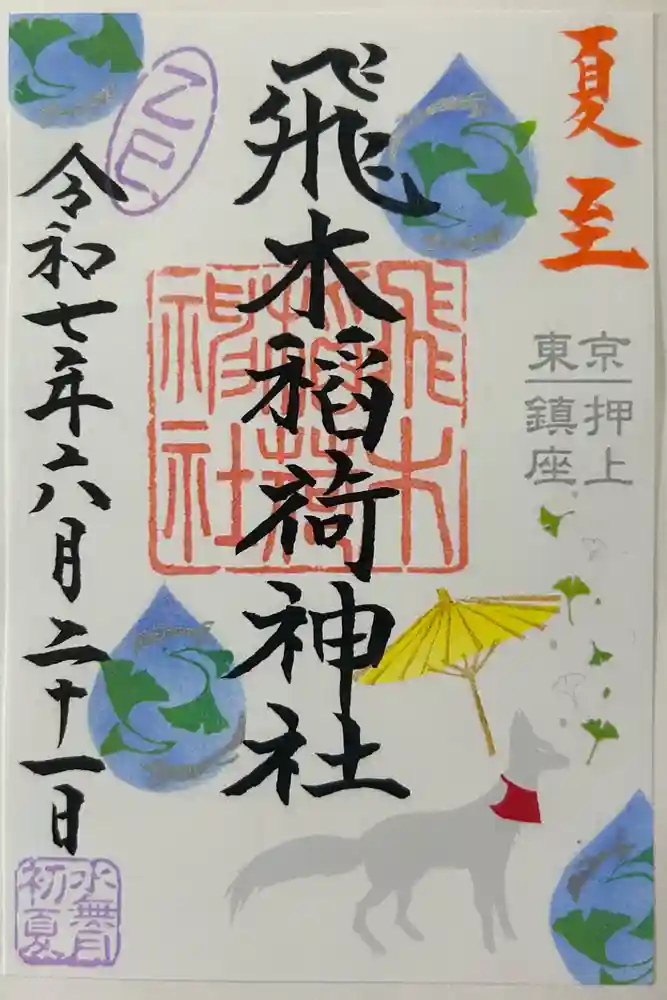 夏至
東京押上
鎮座
飛木稲荷神社
飛木稲荷神社
乙巳
令和七年六月二十一日
水無月
初夏